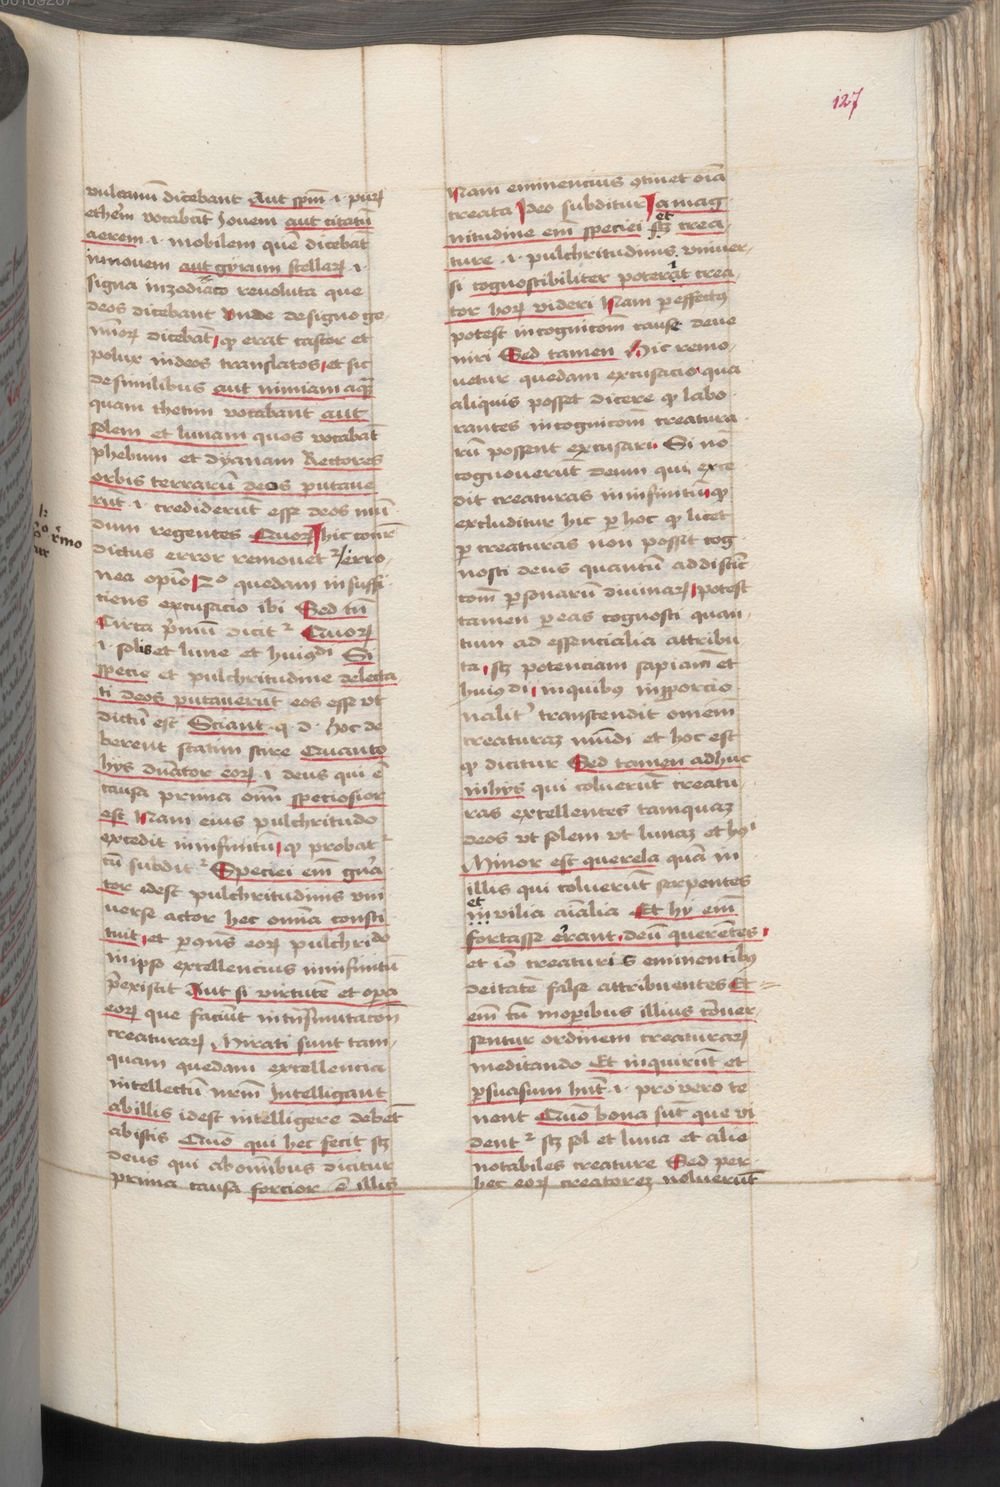 127
vulcanū dicebant Aut spm̄ .i. purꝝ
etherē vocabāt Jovem aut citatū
aerem .i. mobilem quē dicebāt
iunonem aut gyrum stellaꝝ .i.
signa in zodiaco revoluta que
deos dicebant Unde de signo ge
minoꝝ dicebāt qꝫ erat castor et
polux in deos translatos et sic
de similibus aut nimiam aquā
quam thetim vocabant aut
solem et lunam quos vocabāt
phebum et dyanam Rectores
orbis terrarū deos putave
rūt .i. crediderūt esse deos mū
dum regentes Quoꝝ hic
dictus error removetur erro
nea opīo 2o quedam insuffi
ciens excusacio ibi Sed tn̄
Circa prīmū dicitur Quoꝝ
.i. solis et lune et huiꝰdi Si
specie et pulchritudine delecta
ti deos putaverūt eos esse vt
dictū est Sciant .q.d. hoc de
berent statim scire Quanto
hys dn̄ator eoꝝ .i. deus qui ē
causa prima om̄ speciosior
est Nam eius pulchritudo
excedit in infinitū qꝫ probat
cū subdit Speciei em̄ gn̄a
tor idest pulchritudinis uni
verse actor hec omīa consti
tuit et per qn̄s eoꝝ pulchrido
in ipso excellencius in infinitū
prexistit Aut si virtutē et opa
eoꝝ que faciūt in trāsmutacōn
creaturaꝝ Mirati sunt tam
quam quedam excellencia
intellectū nrm̄ Intelligant
ab illis idest intelligere debēt
ab istis Qm̄ qui hec fecit sꝫ
deus qui ab omībus dicitur
prima causa forcior ē illis
Nam eminencius cōtinet oīa
creata Ideo subditur A mag
nitudine em̄ speciei et crea
ture .i. pulchritudinis univer
si cognoscibiliter poterit crea
tor hoꝝ videri Nam per effectū
potest in cognicōm cause deve
niri Sed tamen Hic remo
vetur quedam excusacio qua
aliquis posset dicere qꝫ labo
rantes in cognicōm creatura
rū possent excusari Si nō
cognoverūt deum qui exce
dit creaturas in infinitū qꝫ
excluditur hic per hoc qꝫ licet
per creaturas non possit cog
nosci deus quantū ad distīc
cōm personarū divinaꝝ potest
tamen per eas cognosci quan
tum ad essencialia attribu
ta sꝫ potenciam sapiam et
huiꝰdi in quibus inproporcio
naliter transcendit omem
creaturaꝫ mūdi et hoc est
qꝫ dicitur Sed tamen adhuc
in hys qui coluerūt creatu
ras excellentes tamquaꝫ
deos vt solem vt lunaꝫ et hꝰ
Minor est querela quā in
illis qui coluerūt serpentes
et vilia aīalia Et hy em̄
fortasse errant deū querentes
et iō creaturis eminentibꝰ
deitatē false attribuentes Et
em̄ cū in operibus illius cōver
sentur ordinem creaturaꝝ
meditando Et inquirūt et
persuasum hn̄t .i. pro vero te
nent Qm̄ bona sūt que vi
dentur sꝫ sol et luna et alie
notabiles creature Sed per
hec eoꝝ creatoreꝫ noluerūt